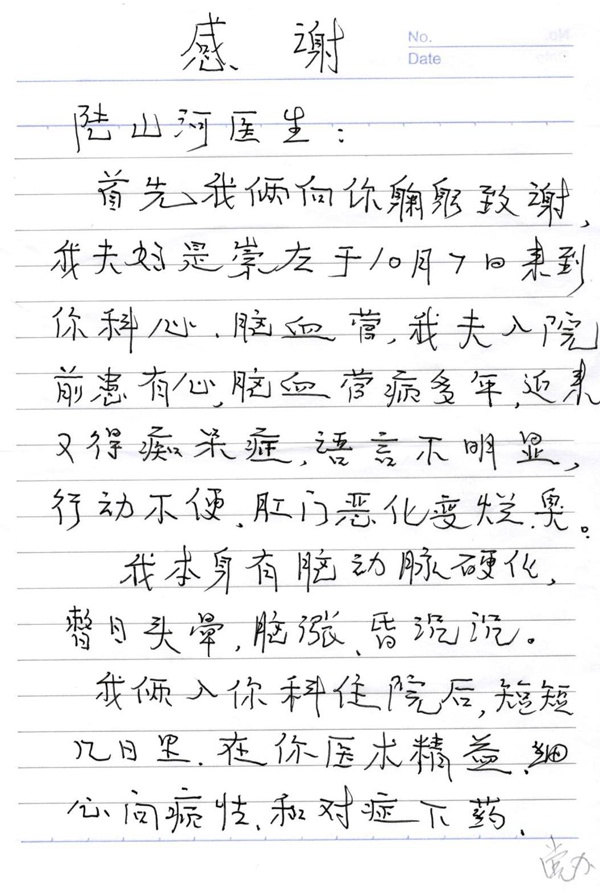 感谢
No.
Date
陆山河医生:
首先我俩向你鞠躬致谢,
我夫妇是崇左于10月7日来到
你科心、脑血管,我夫入院
前患有心,脑血管病多年,近来
又得痴呆症,语言不明显,
行动不便、肛门恶化变烂臭。
我本身有脑动脉硬化,
整日头晕,脑涨、昏沉沉。
我俩入你科住院后,短短
几日里、在你医术精益、细
心问病情、和对症下药、
党办